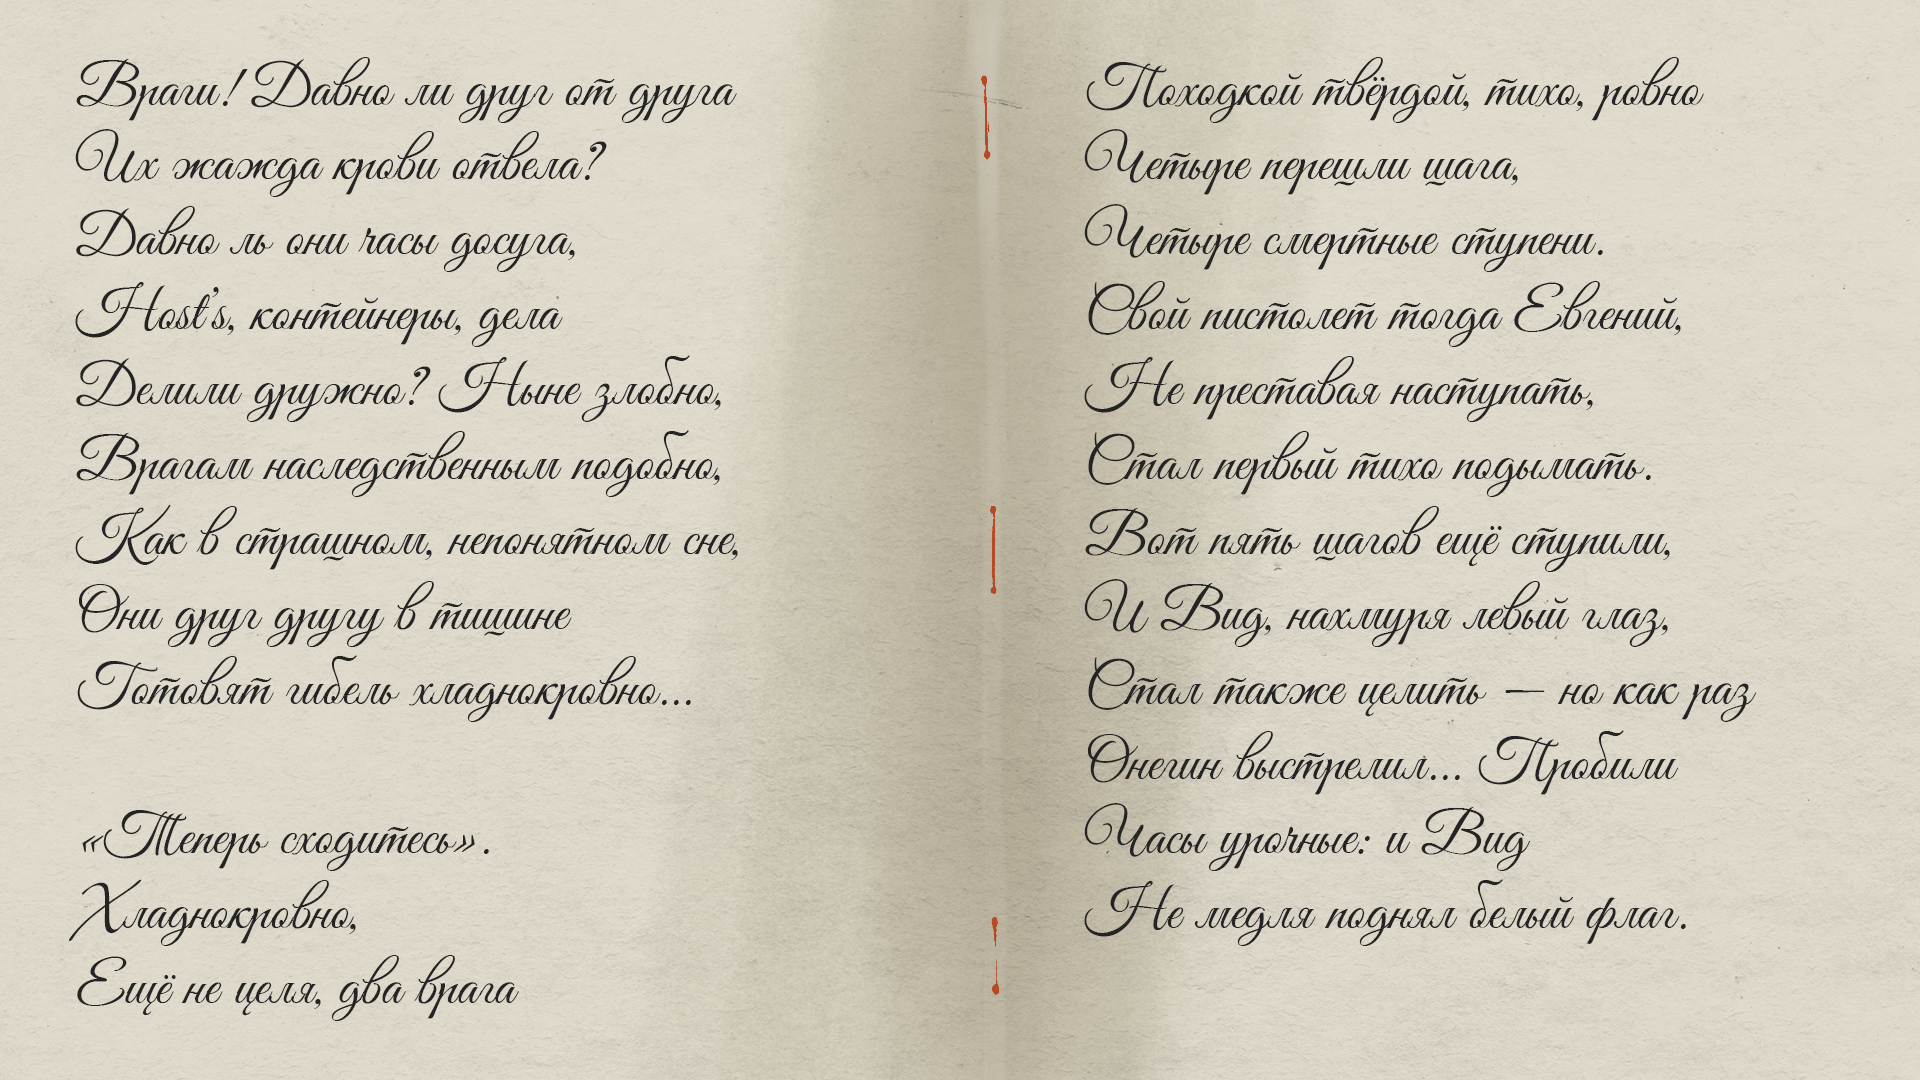 Враги! Давно ли друг от друга
Их жажда крови отвела?
Давно ль они часы досуга,
Host's, контейнеры, дела
Делили дружно? Ныне злобно,
Врагам наследственным подобно,
Как в страшном, непонятном сне,
Они друг другу в тишине
Готовят гибель хладнокровно...
«Теперь сходитесь».
Хладнокровно,
Ещё не целя, два врага
Походкой твёрдой, тихо, ровно
Четыре перешли шага,
Четыре смертные ступени.
Свой пистолет тогда Евгений,
Не преставая наступать,
Стал первый тихо подымать.
Вот пять шагов ещё ступили,
И Вид, нахмуря левый глаз,
Стал также целить — но как раз
Онегин выстрелил... Пробили
Часы урочные: и Вид
Не медля поднял белый флаг.